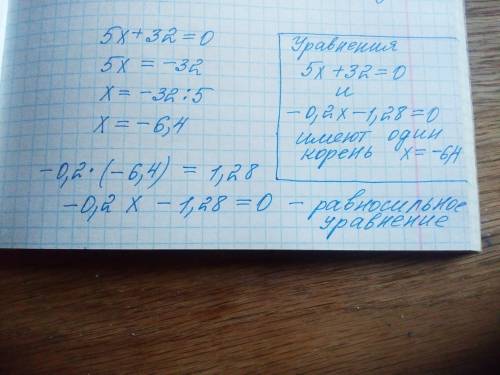 5x+32=0
5x = -32
x = -32:5
x = -6,4
-0,2·(-6,4) = 1,28
-0,2 x - 1,28 = 0 - равносильное
уравнение
Уравнения
5x+32=0
и
-0,2x-1,28=0
имеют один
корень x=-6,4